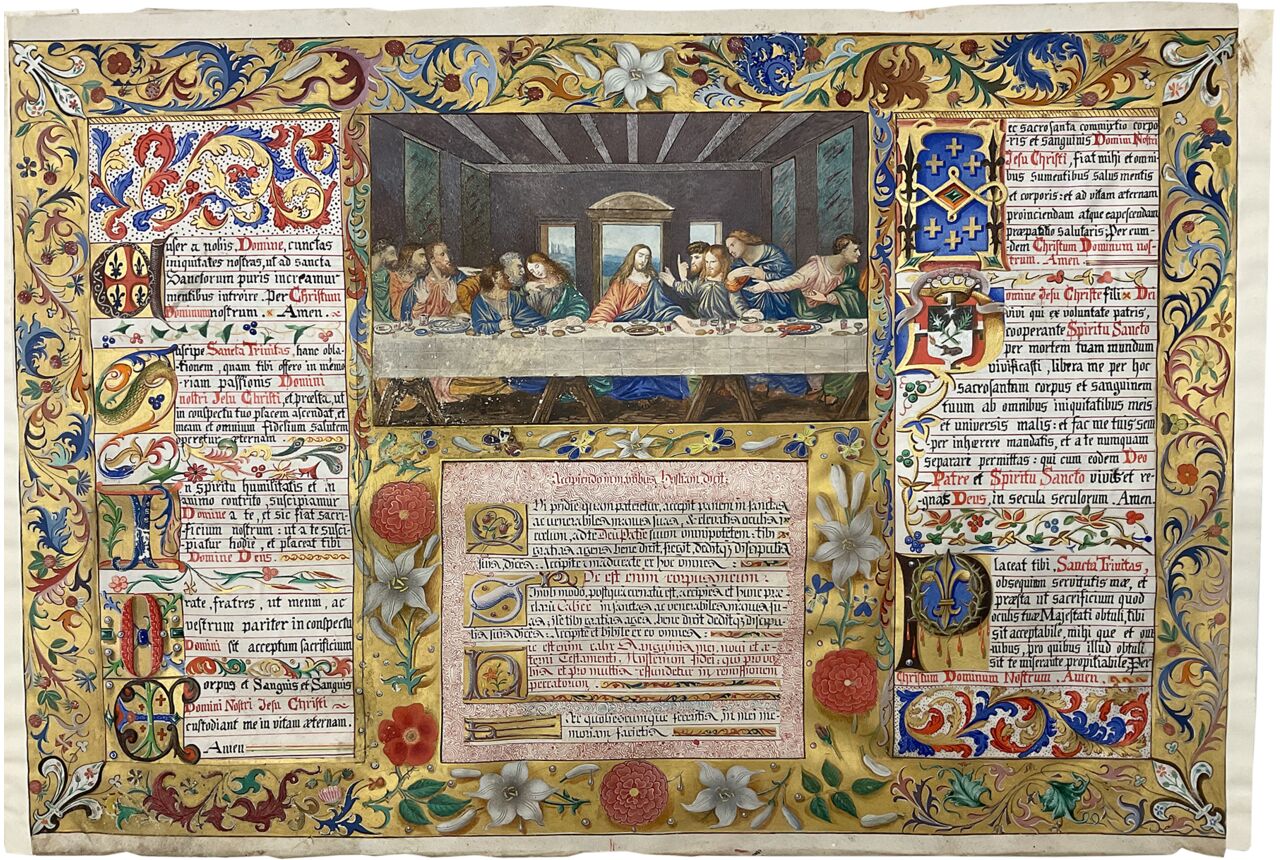 Aufer a nobis, Domine, cunctas
iniquitates nostras, ut ad sancta
Sanctorum puris increamur
mentibus introire. Per Christum
Dominum nostrum. Amen.
Suscipe Sancta Trinitas, hanc obla-
tionem, quam tibi offero in memo
riam passionis Domini
nostri Jesu Christi, et præsta, ut
in conspectu tuo placem ascendat, et
meam et omnium fidelium salutem
operetur æternam
In spiritu humilitatis et in
animo contrito, suscipiamur
Domine a te, et sic fiat sacri-
ficium nostrum: ut a te susci-
piatur hodie, et placeat tibi
Domine Deus.
Orate, fratres, ut meum, ac
vestrum pariter in conspectu
Domini sit acceptum sacrificium
Corpus et Sanguis et Sanguis
Domini Nostri Jesu Christi
custodiant me in vitam æternam.
Amen
Accipiendo in manibus hostiam dicit.
Qui pridie quam pateretur, accepit panem in sanctas
ac venerabiles manus suas, & elevatis oculis in
cœlum, ad te Deu Patrē suum omnipotētem: tibi
gratias agens bene dixit, fregit, deditq; discipulis
suis dices: Accipite & māducate ex hoc omnes:
Hoc est enim corpus meum:
Simili modo, postquā cenatū est, accipiēs et hunc præ
clarū Calicē in sanctas ac venerabiles manus su-
as, itē tibi gratias agēs bene dixit deditq; discipu-
lis suis dices: Accipite et bibite ex eo omnes:
Hic est enim calix Sanguinis mei, novi et æ-
terni Testamenti: Mysterium fidei: qui pro vo
bis et pro multis effundetur in remissionem
peccatorum.
Hæc quotiescumque feceritis in mei me
moriam facietis
Hæc sacrosanta commixtio corpo
ris et sanguinis Domini Nostri
Jesu Christi, fiat mihi et omni-
bus sumentibus salus mentis
et corporis: et ad vitam æternam
proinciendam atque capescendam
præpatio salutaris: Per eum-
dem Christum Dominum nos-
trum. Amen
Domine Jesu Christe fili Dei
vivi qui ex voluntate patris,
cooperante Spiritu Sancto
per mortem tuam mundum
vivificasti, libera me per hoc
sacrosantum corpus et sanguinem
tuum ab omnibus iniquitatibus meis
et universis malis: et fac me tuis sem
per inhœrere mandatis, et a te numquam
separare permittas: qui cum eodem Deo
Patre et Spiritu Sancto vivis et re-
gnas Deus, in secula seculorum. Amen.
Placeat tibi, Sancta Trinitas,
obsequium servitutis mæ, et
præsta ut sacrificium quod
oculis tuæ Majestati obtuli, tibi
sit acceptabile, mihi que et om
nibus, pro quibus illud obtuli
sit te miserante propitiabile. Per
Christum Dominum Nostrum. Amen.